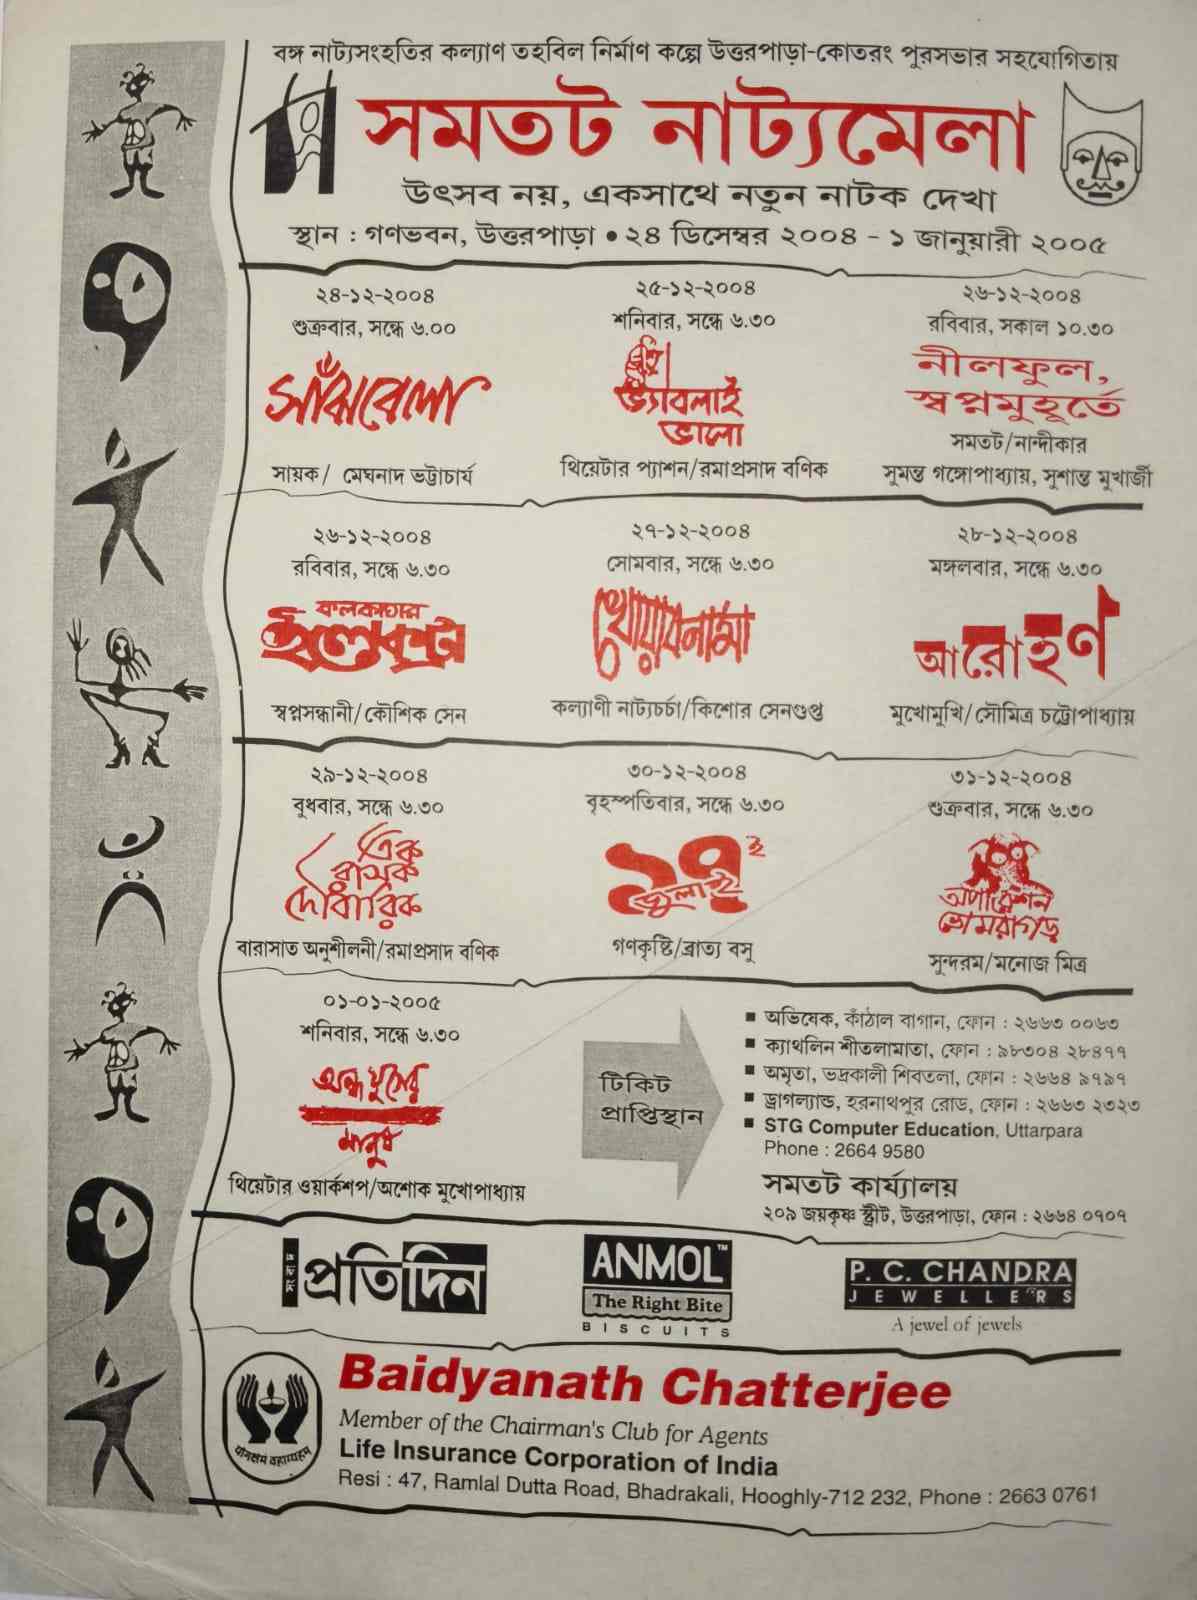 বঙ্গ নাট্যসংহতির কল্যাণ তহবিল নির্মাণ কল্পে উত্তরপাড়া-কোতরং পুরসভার সহযোগিতায়
সমতট নাট্যমেলা
উৎসব নয়, একসাথে নতুন নাটক দেখা
স্থান : গণভবন, উত্তরপাড়া • ২৪ ডিসেম্বর ২০০৪ - ১ জানুয়ারী ২০০৫
২৪-১২-২০০৪
শুক্রবার, সন্ধে ৬.০০
সাঁঝবেলা
সায়ক/ মেঘনাদ ভট্টাচার্য
২৫-১২-২০০৪
শনিবার, সন্ধে ৬.৩০
ভ্যাবলাই
ভালো
থিয়েটার প্যাশন/রমাপ্রসাদ বণিক
২৬-১২-২০০৪
রবিবার, সকাল ১০.৩০
নীলফুল,
স্বপ্নমুহূর্তে
সমতট/নান্দীকার
সুমন্ত গঙ্গোপাধ্যায়, সুশান্ত মুখার্জী
২৬-১২-২০০৪
রবিবার, সন্ধে ৬.৩০
কলকাতার
ইলেকট্রা
স্বপ্নসন্ধানী/কৌশিক সেন
২৭-১২-২০০৪
সোমবার, সন্ধে ৬.৩০
খোয়াবনামা
কল্যাণী নাট্যচর্চা/কিশোর সেনগুপ্ত
২৮-১২-২০০৪
মঙ্গলবার, সন্ধে ৬.৩০
আরোহণ
মুখোমুখি/সৌমিত্র চট্টোপাধ্যায়
২৯-১২-২০০৪
বুধবার, সন্ধে ৬.৩০
দৌবারিক
বারাসাত অনুশীলনী/রমাপ্রসাদ বণিক
৩০-১২-২০০৪
বৃহস্পতিবার, সন্ধে ৬.৩০
১৭ই
জুলাই
গণকৃষ্টি/ব্রাত্য বসু
৩১-১২-২০০৪
শুক্রবার, সন্ধে ৬.৩০
অপারেশন
ভোমরাগড়
সুন্দরম/মনোজ মিত্র
০১-০১-২০০৫
শনিবার, সন্ধে ৬.৩০
অন্ধযুগের
মানুষ
থিয়েটার ওয়ার্কশপ/অশোক মুখোপাধ্যায়
টিকিট
প্রাপ্তিস্থান
■ অভিষেক, কাঁঠাল বাগান, ফোন : ২৬৬৩ ০০৬৩
■ ক্যাথলিন শীতলামাতা, ফোন : ৯৮৩০৪ ২৮৪৭৭
■ অমৃতা, ভদ্রকালী শিবতলা, ফোন : ২৬৬৪ ৯৭৯৭
■ ড্রাগল্যান্ড, হরনাথপুর রোড, ফোন : ২৬৬৩ ২৩২৩
■ STG Computer Education, Uttarpara
Phone : 2664 9580
সমতট কার্য্যালয়
২০৯ জয়কৃষ্ণ স্ট্রীট, উত্তরপাড়া, ফোন : ২৬৬৪ ০৭০৭
সংবাদ প্রতিদিন
ANMOL™
The Right Bite
BISCUITS
P. C. CHANDRA
JEWELLERS
A jewel of jewels
योगक्षेमं वहाम्यहम्
Baidyanath Chatterjee
Member of the Chairman's Club for Agents
Life Insurance Corporation of India
Resi : 47, Ramlal Dutta Road, Bhadrakali, Hooghly-712 232, Phone : 2663 0761